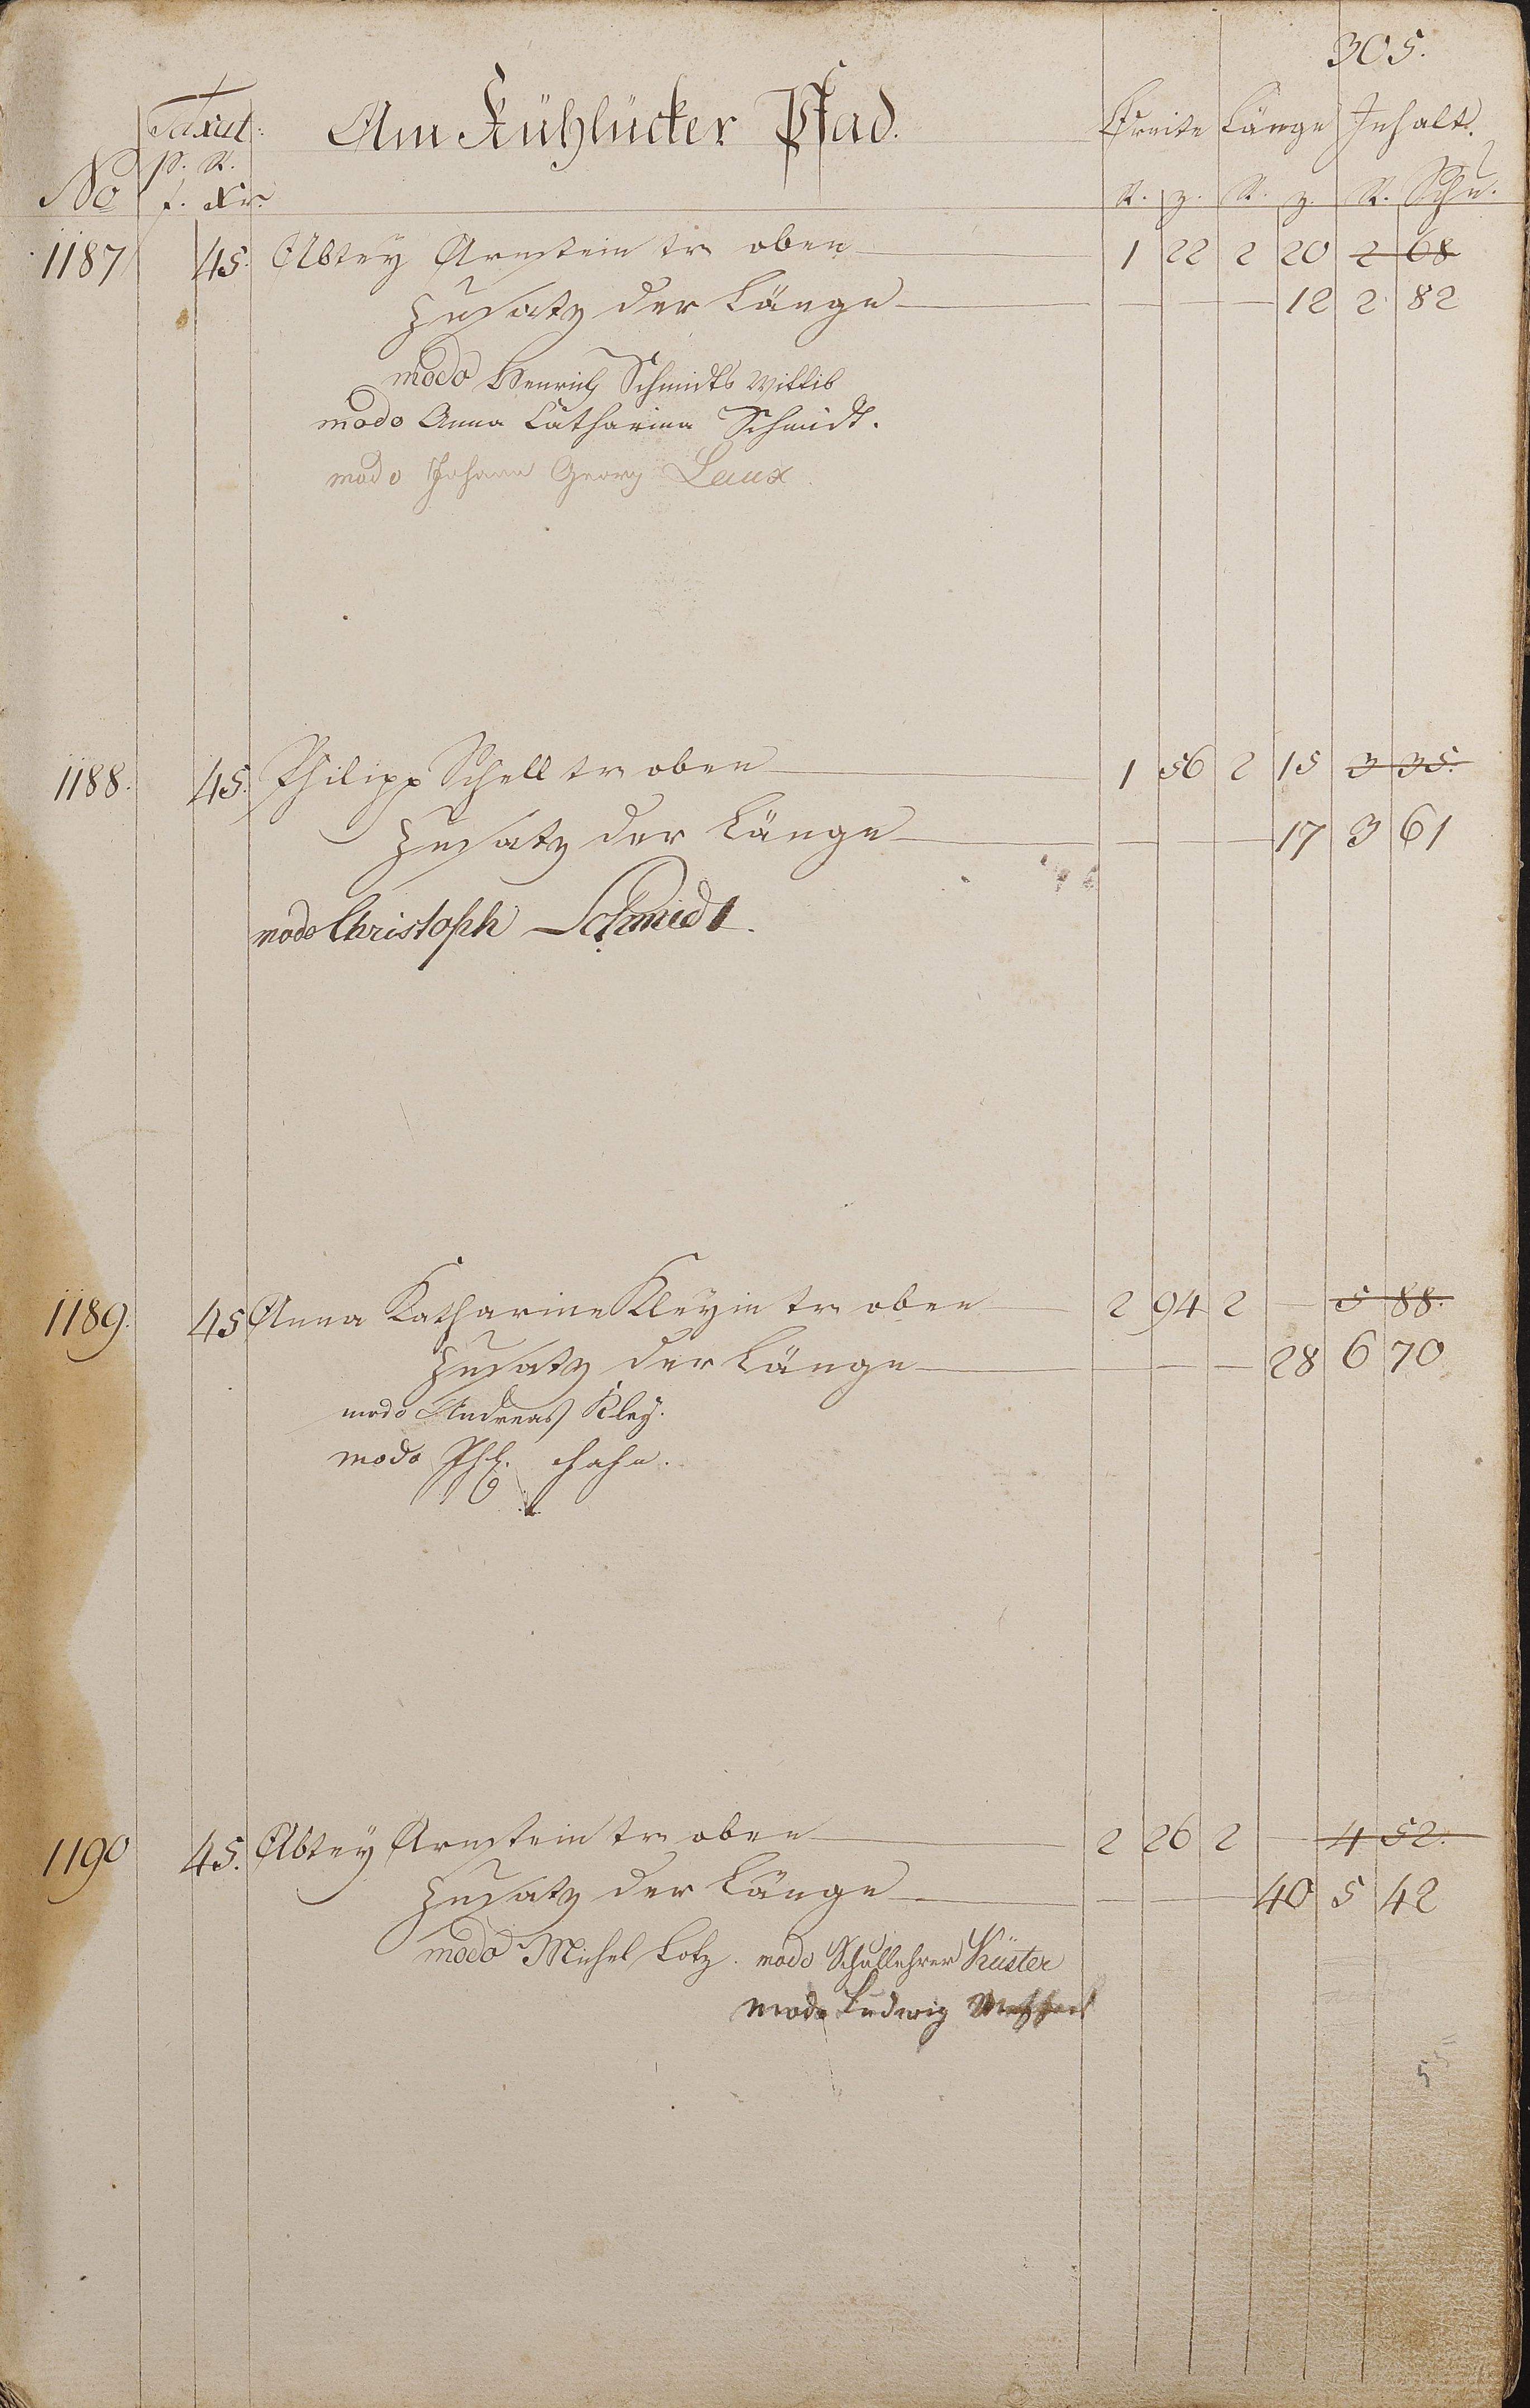 305.
Taxat: Am Kühlücker Pfad. Breite Länge Inhalt.
p. R.
No f. Xr. R. z. R. z. R. Schu.
1187 45. Abtey Arnstein tr oben 1 22 2 20 2 68
Zusatz der Länge 12 2 82
modo Henrich Schmidts Wittib
modo Anna Catharina Schmidt.
modo Johann Georg Laux
1188. 45. Philipp Schell tr oben 1 56 2 15 3 35.
Zusatz der Länge 17 3 61
modo Christoph Schmidt.
1189. 45 Anna Katharine Kleyin tr oben 2 94 2 — 5 88.
Zusatz der Länge 28 6 70
modo Andreas Kley.
modo Ph. Hahn.
1190 45. Abtey Arnstein tr oben 2 26 2 — 4 52.
Zusatz der Länge 40 5 42
modo Michel Lotz. modo Schullehrer Küster
modo Ludwig